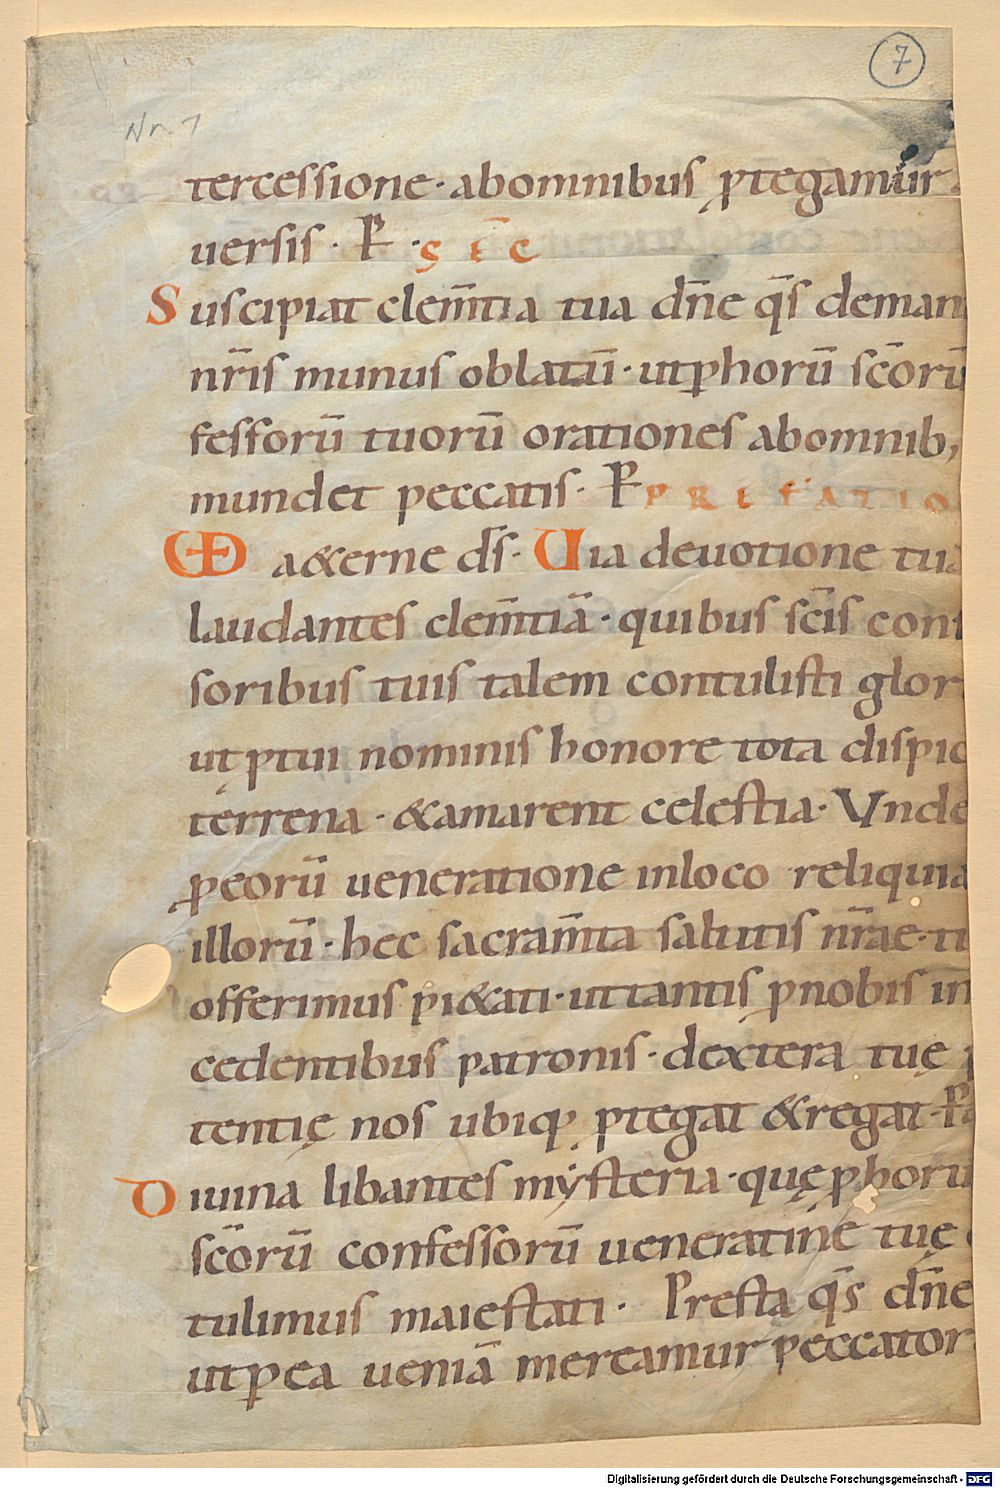 7
Nr. 7
tercessione · abomnibus ꝓtegamur
uersis · P · SEC
Suscipiat clem̅tia tua dn̅e qs̅ deman
nr̅is munus oblatu̅ · utꝑhoru̅ sc̅oru̅
fessoru̅ tuoru̅ orationes abomnib;
mundet peccatis · P PREFATIO
VD aet&erne ds̅ · Uia deuotione tua
laudantes clem̅tia̅ · quibus sc̅is conf
soribus tuis talem contulisti glor
utꝓtui nominis honore tota dispic
terrena · &amarent celestia · Vnde
ꝓeoru̅ ueneratione inloco reliquia
illoru̅ · hec sacram̅ta salutis nr̅ae · ti
offerimus pi&ati · uttantis ꝓnobis in
cedentibus patronis · dextera tuę p
tentię nos ubiqꝫ ꝓtegat &regat · P
Diuina libantes mẏsteria · quę ꝓhoru
sc̅oru̅ confessoru̅ ueneratin̅e tuę
tulimus maiestati · Presta qs̅ dn̅e
utꝑea uenia̅ mereamur peccator
Digitalisierung gefördert durch die Deutsche Forschungsgemeinschaft - DFG